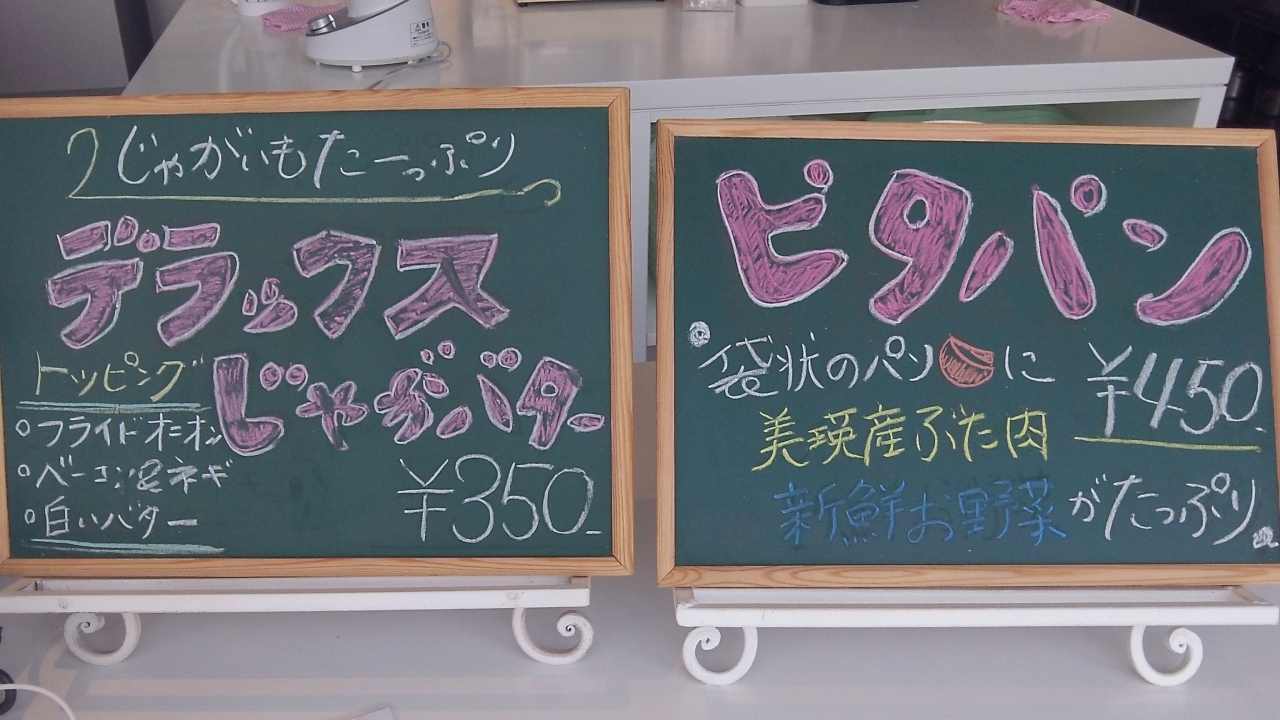 じゃがいもたーっぷり
デラックス
じゃがバター
トッピング
フライドオニオン
ベーコン&ネギ
白いバター
¥350.-
ピタパン
袋状のパンに
¥450.-
美瑛産ぶた肉
新鮮お野菜がたっぷり